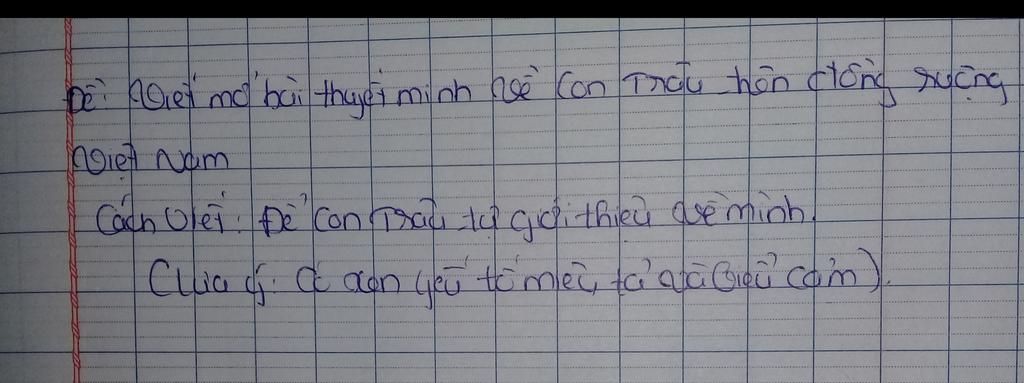 Đề: Viết mở bài thuyết minh về Con Trâu trên đồng ruộng
Việt Nam
Cách Viết: Để Con Trâu tự giới thiệu về mình.
(Lưu ý: Có xen yếu tố miêu tả và Biểu cảm).